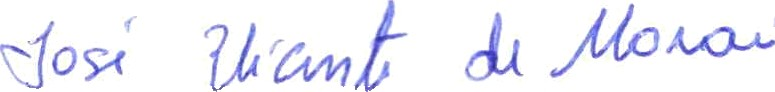 José Vicente de Morai